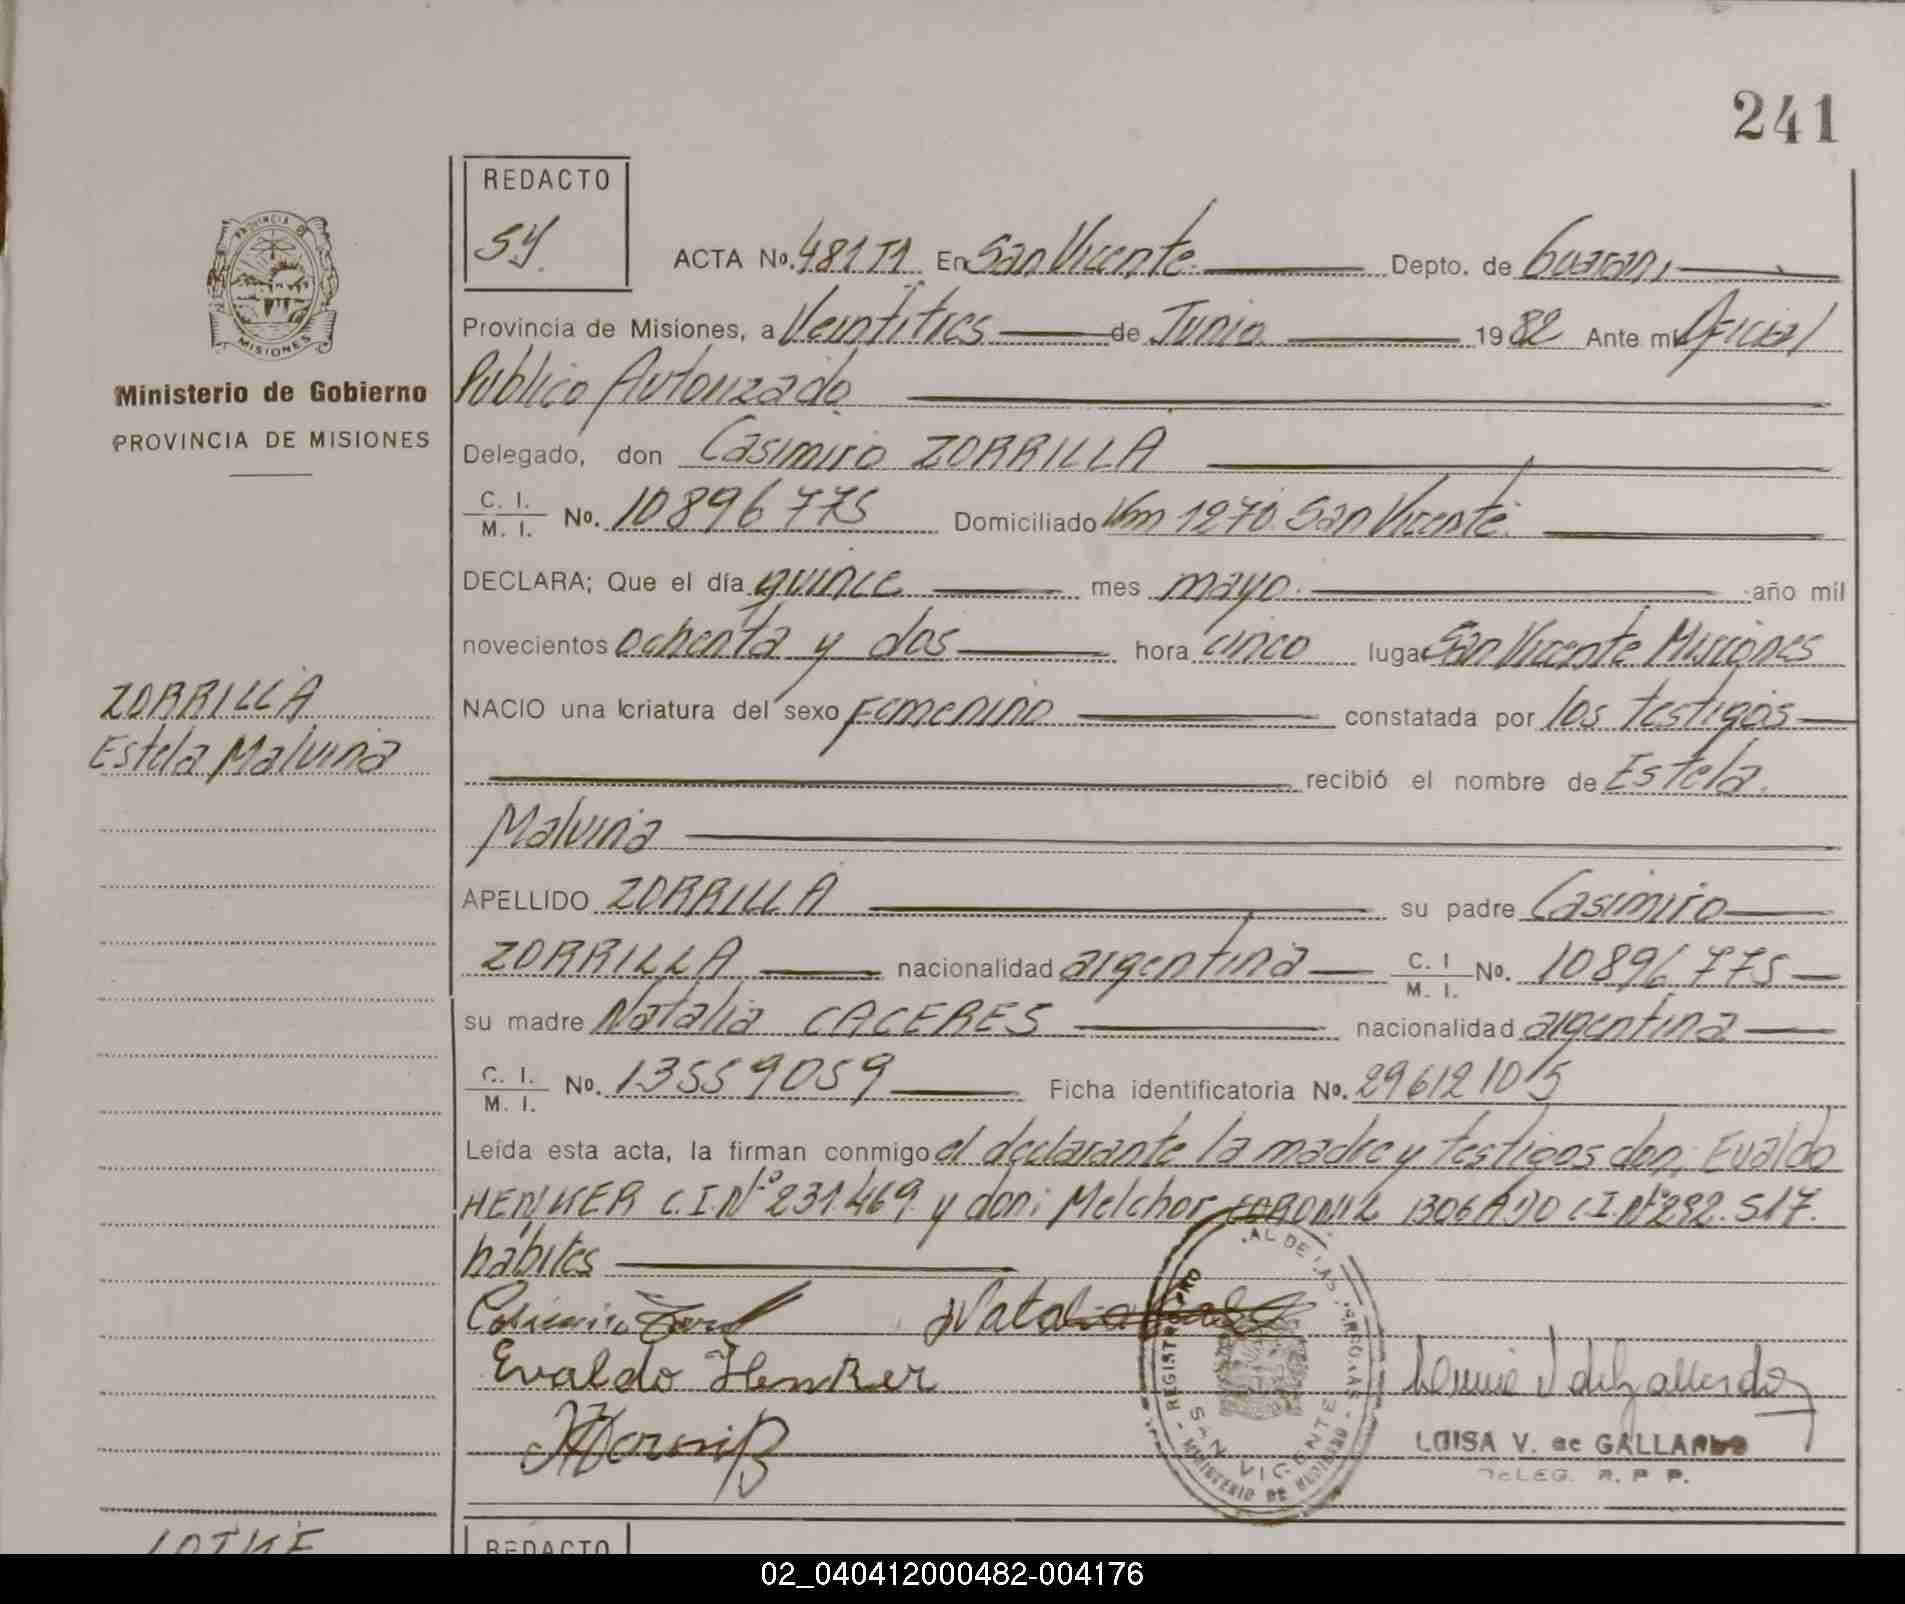 241
REDACTO
S.Y.
ACTA No. 481 T1 En San Vicente Depto. de Guaraní
Provincia de Misiones, a Veintitres de Junio 1982 Ante mí Oficial
Publico Autorizado
Delegado, don Casimiro ZORRILLA
C. I. / M. I. No. 10896775 Domiciliado Km 1270 San Vicente.
DECLARA; Que el día quince mes mayo año mil
novecientos ochenta y dos hora cinco lugar San Vicente Misiones
NACIO una criatura del sexo femenino constatada por los testigos
recibió el nombre de Estela
Malvina
APELLIDO ZORRILLA su padre Casimiro
ZORRILLA nacionalidad argentina C. I / M. I. No. 10896775
su madre Natalia CACERES nacionalidad argentina
C. I. / M. I. No. 13559059 Ficha identificatoria No. 29612105
Leída esta acta, la firman conmigo el declarante la madre y testigos don; Evaldo
HENKER C.I.Nº 231.469. y don: Melchor C.I.Nº 292.517.
hábiles
Casimiro Natalia
Evaldo Henker
LUISA V. de GALLARDO
DELEG. R. P. P.
REGISTRO AL DE LAS PERSONAS
SAN VICENTE
MINISTERIO DE GOBIERNO
PROVINCIA DE
MISIONES
Ministerio de Gobierno
PROVINCIA DE MISIONES
ZORRILLA
Estela Malvina
REDACTO
02_040412000482-004176